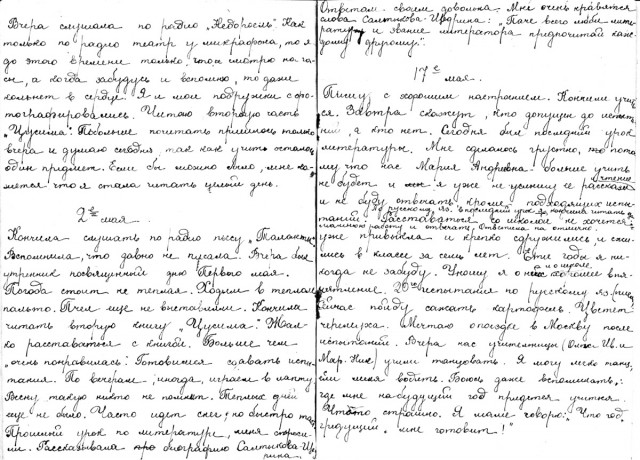 Вчера слушала по радио „Недоросль“. Как
только по радио театр у микрофона, то я
до этого времени только что и смотрю на ча-
сы, а когда забудусь и вспомню, то даже
кольнет в сердце. Я и мои подружки с фо-
тографировались. Читаю вторую часть
„Цусима“. Побольше почитать пришлось только
вчера и думаю сегодня, так как учить осталось
один предмет. Если бы можно было, мне ка-
жется что я стала читать целый день.
2ое мая.
Кончила слушать по радио пьесу „Таланты“
Вспомнила, что давно не писала. Вчера был
утренник посвященный дню Первого мая.
Погода стоит не теплая. Ходим в теплом
пальто. Пчел еще не выставляли. Кончила
читать вторую книгу „Цусима“. Жал-
ко расставаться с книгой. Больше чем
„очень понравилась“. Готовимся сдавать испы-
тания. По вечерам, иногда, играем в лапту
Весну такую никто не помнит. Теплых дней
еще не было. Часто идет снег, но быстро тает
Прошлый урок по литературе, меня спроси-
ли. Рассказывала про биографию Салтыкова-Ще-
дрина.
Ответом своим довольна. Мне очень нравятся
слова Салтыкова-Щедрина: „Паче всего люби лите-
ратуру и звание литератора предпочитай каж-
дому другому.“
17ое мая.
Пишу с хорошим настроением. Кончили учить-
ся. Завтра скажут, кто допущен до испыта-
ний, а кто нет. Сегодня был последний урок
литературы. Мне сделалось грустно, потому
му что нас Мария Андреевна больше учить
не будет и я уже не услышу ее рассказы
чтение
и не буду отвечать кроме подходящих испы-
по русскому яз. в последний урок я кончила читать до-
таний. Расставаться со школой не хочется:
машнюю работу и отвечать. Ответила на отлично.
уже привыкла и крепко сдружились и сжи-
лись в классе за семь лет. Эти годы я ни-
когда не забуду. Уношу я о ней хорошее впе-
о школе
чатление. 20ое испытания по русскому яз. (пись.
Сейчас пойду сажать картофель. Цветет
черемуха. Мечтаю о поездке в Москву после
испытаний. Вчера нас учительницы (Ольга Ив. и
Мар. Ник.) учили танцовать. Я могу легко танц.
Ели меня водить. Боюсь даже вспоминать,
где мне на будущий год придется учится.
Что-то страшно. Я маме говорю: „Что год
грядущий мне готовит!“